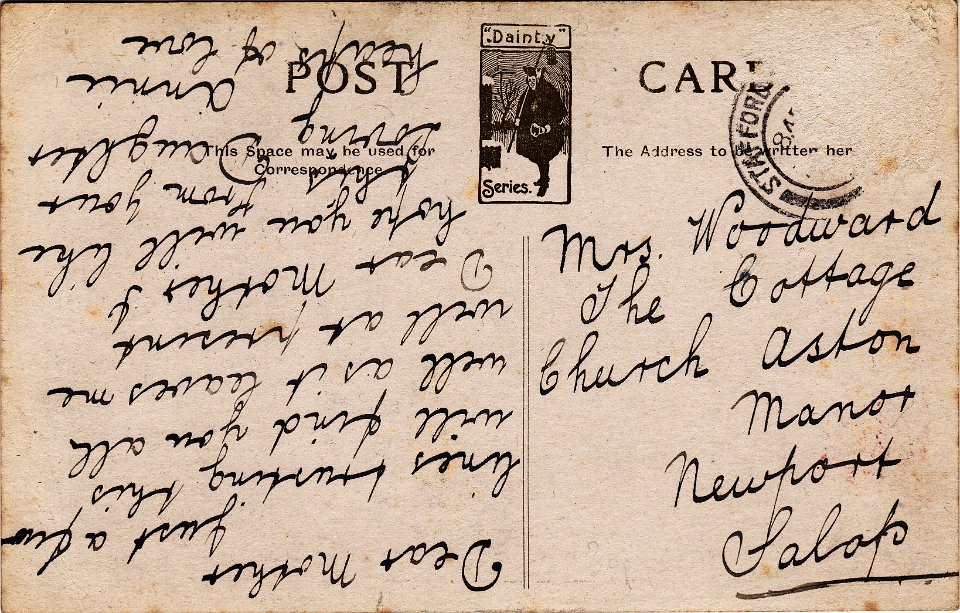 POST CARD
"Dainty"
Series.
This Space may be used for
Correspondence
The Address to be written here
STAFFORD
Dear Mother
just a few
lines trusting this
will find you all
well as it leaves me
well at present
Dear Mother I
hope you will like
this from your
Loving Daughter
Annie
heaps of love
Mrs. Woodward
The Cottage
Church Aston
Manor
Newport
Salop